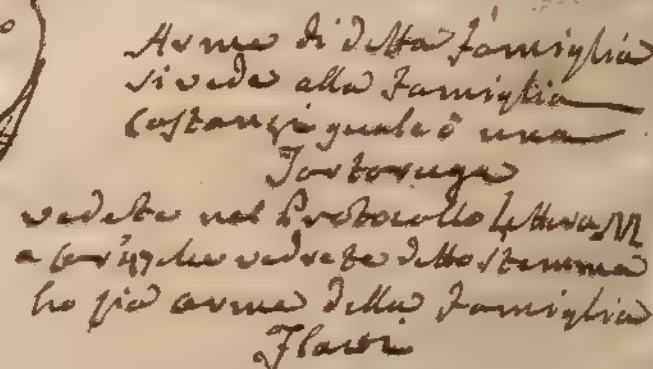 Arme di detta famiglia
si vede alla Famiglia
Costanzi quale è una
Tortoruga
vedete nel Protocollo Lettera M
a car: 47 che vedrete detto stemma
ho già arme della Famiglia
Flavi